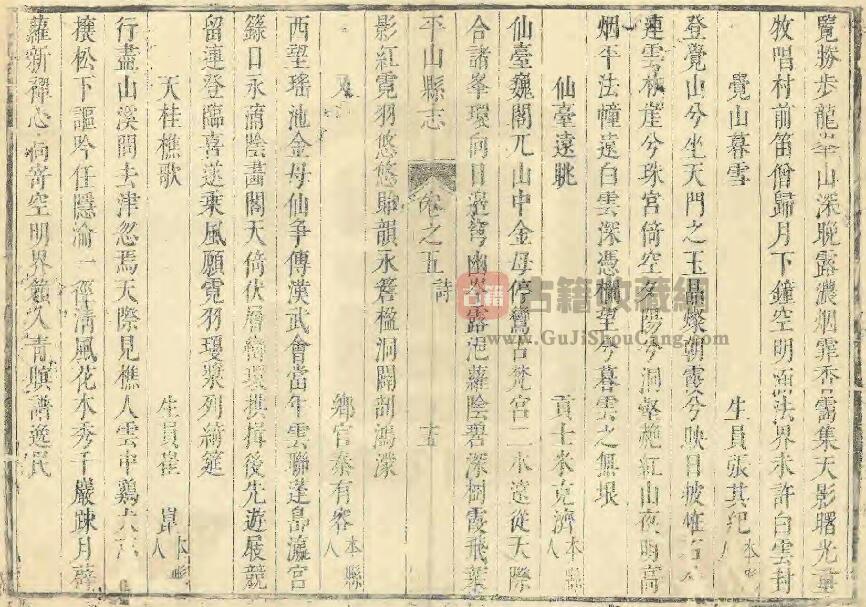 覽勝步龍山深晚露濃烟霏香靄集天影曙光
牧唱村前笛僧歸月下鐘空明法界未許白雲封
覺山暮雪 生員張其紀 本縣人
登覺山兮坐天門之玉晶燦朝霞兮映日披帷
連雲兮珠宮倚空夕陽兮洞壑艷紅山夜明高
烟平法幢遠白雲深憑欄望兮暮雲之無垠
仙臺遠眺 貢士米克濟 本縣人
仙臺巍閣兀山中金母停鸞古梵宮二水遠從天際
合諸峯環向日邊穹幽露浥蘿陰碧深樹霞飛葉
影紅霓羽悠悠賸韻永簪楹洞闢剖鴻濛
平山縣志 卷之五 詩 十五
又 鄉官秦有容 本縣人
西望瑤池金母仙爭傳漢武會當年雲聯蓬島瀛宮
籙日永蒲陰畵閣天倚伏層巒環拱揖後先遊屐競
留連登臨喜遂乘風願霓羽瓊漿列綺筵
天桂樵歌 生員崔 本縣人
行盡山溪問去津忽焉天際見樵人雲中鷄犬
松下謳吟任隱淪一徑清風花木秀千巖疎月薜
蘿新禪心寄空明界譜逸民
古籍
古籍收藏網
www.GuJiShouCang.com